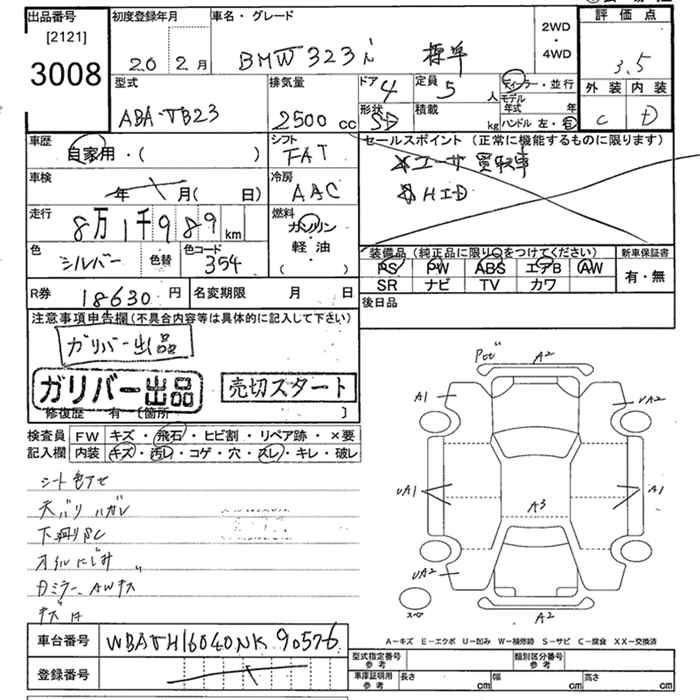 出品番号 初度登録年月 車名・グレード 2WD・4WD 評価点
[2121]
3008 20 2月 BMW 323i 標準 3.5
型式 排気量 ドア 4 定員 5人 ディーラー・並行 外装 内装
ABA-VB23 2500cc 形状 SD 積載 kg モデル年式 年 C D
ハンドル 左・右
車歴 シフト セールスポイント(正常に機能するものに限ります)
自家用・( ) FAT ユーザ買取車
車検 冷房 HID
年 月( 日) AAC
走行 燃料
8万1千989km ガソリン
色 色替 色コード 軽・油 装備品(純正品に限り○をつけてください) 新車保証書
シルバー 354 ( ) PS PW ABS エアB AW 有・無
SR ナビ TV カワ
R券 18630円 名変期限 月 日 後日品
注意事項申告欄(不具合内容等は具体的に記入して下さい)
ガリバー出品
ガリバー出品 売切スタート
修復歴 有 〔箇所 〕
検査員 FW キズ・飛石・ヒビ割・リペア跡・×要
記入欄 内装 キズ・汚レ・コゲ・穴・スレ・キレ・破レ
シート色アセ
天バリハガレ
下廻りSC
オイルにじみ
Dミラー、AWキズ
A2
A1
UA2
UA1
A3
A1
UA2
A2
スペア
A-キズ E-エクボ U-凹み W-補修跡 S-サビ C-腐食 XX-交換済
車台番号 WBAVH16040NK90576
登録番号
型式指定番号 参考 類別区分番号 参考
車庫証明用 参考 長さ cm 幅 cm 高さ cm